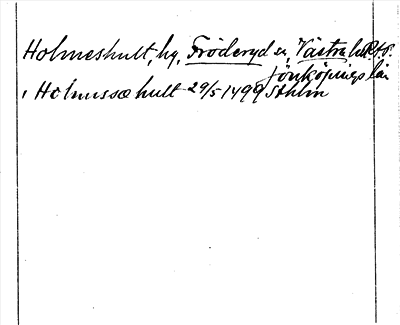 Holmeshult, by, Fröderyd sn, Västra hd R.A.P.
Jönköpings län
i Holmssæhult 29/5 1499 Sthlm